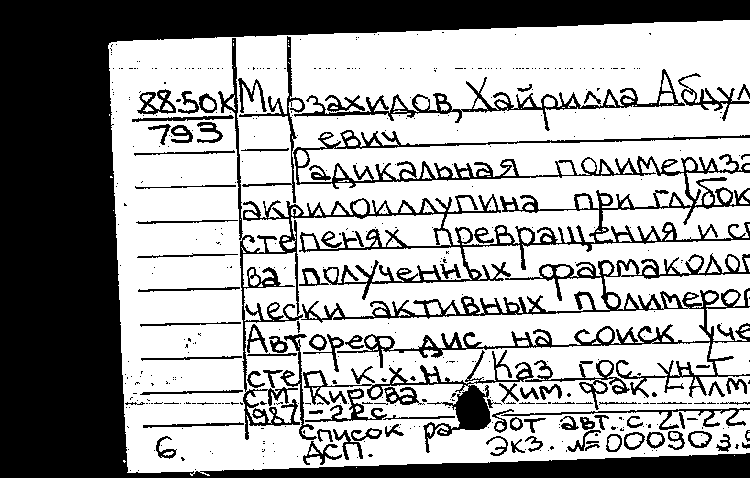 88-50К Мирзахидов, Хайрилла Абдул
793 евич.
Радикальная полимериза
акрилоиллупина при глубок
степенях превращения и св
ва полученных фармаколог
чески активных полимеров
Автореф. дис. на соиск. уче
степ. к.х.н. / Каз гос. ун-т
С.М. Кирова. Хим. фак. – Алм
1987 – 22 с.
Список ра от авт.: с. 21-22
6. ДСП. Экз. №000903.